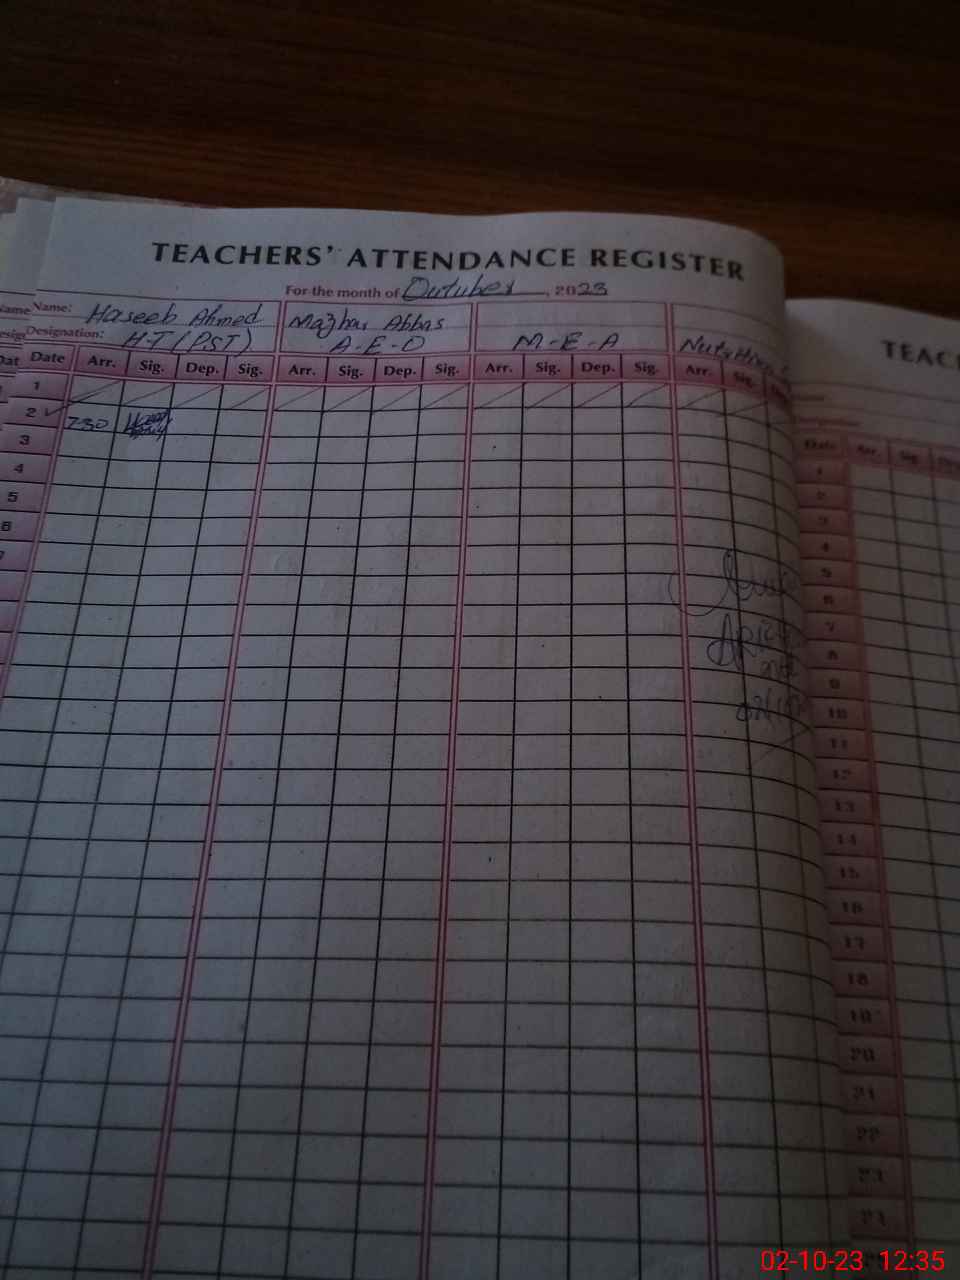 TEACHERS' ATTENDANCE REGISTER
For the month of Outuber, 2023
Name: Haseeb Ahmed Mazhar Abbas
Designation: H-T (PST) A-E-O M-E-A
Date Arr. Sig. Dep. Sig. Arr. Sig. Dep. Sig. Arr. Sig. Dep. Sig. Arr. Sig.
1
2 7-30
3
4
5
6
7
TEAC
Date Arr. Sig.
1
2
3
4
5
6
7
8
9
10
11
12
13
14
15
16
17
18
19
20
21
22
23
24
02-10-23 12:35